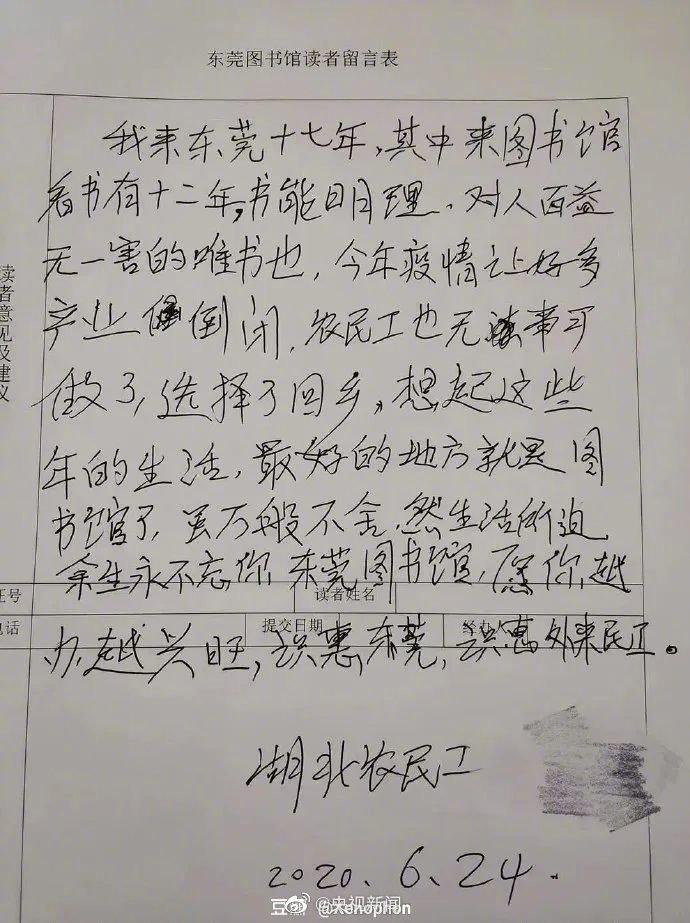 东莞图书馆读者留言表
我来东莞十七年,其中来图书馆
看书有十二年,书能明理、对人百益
无一害的唯书也,今年疫情让好多
产业倒闭,农民工也无事可
做了,选择了回乡,想起这些
年的生活,最好的地方就是图
书馆了,虽万般不舍,然生活所迫
余生永不忘你,东莞图书馆,愿你越
办越兴旺,识惠东莞,识惠外来民工。
读者意见及建议
证号
读者姓名
电话
提交日期
经办人
湖北农民工
2020.6.24.
豆
@央视新闻
@Xenophon